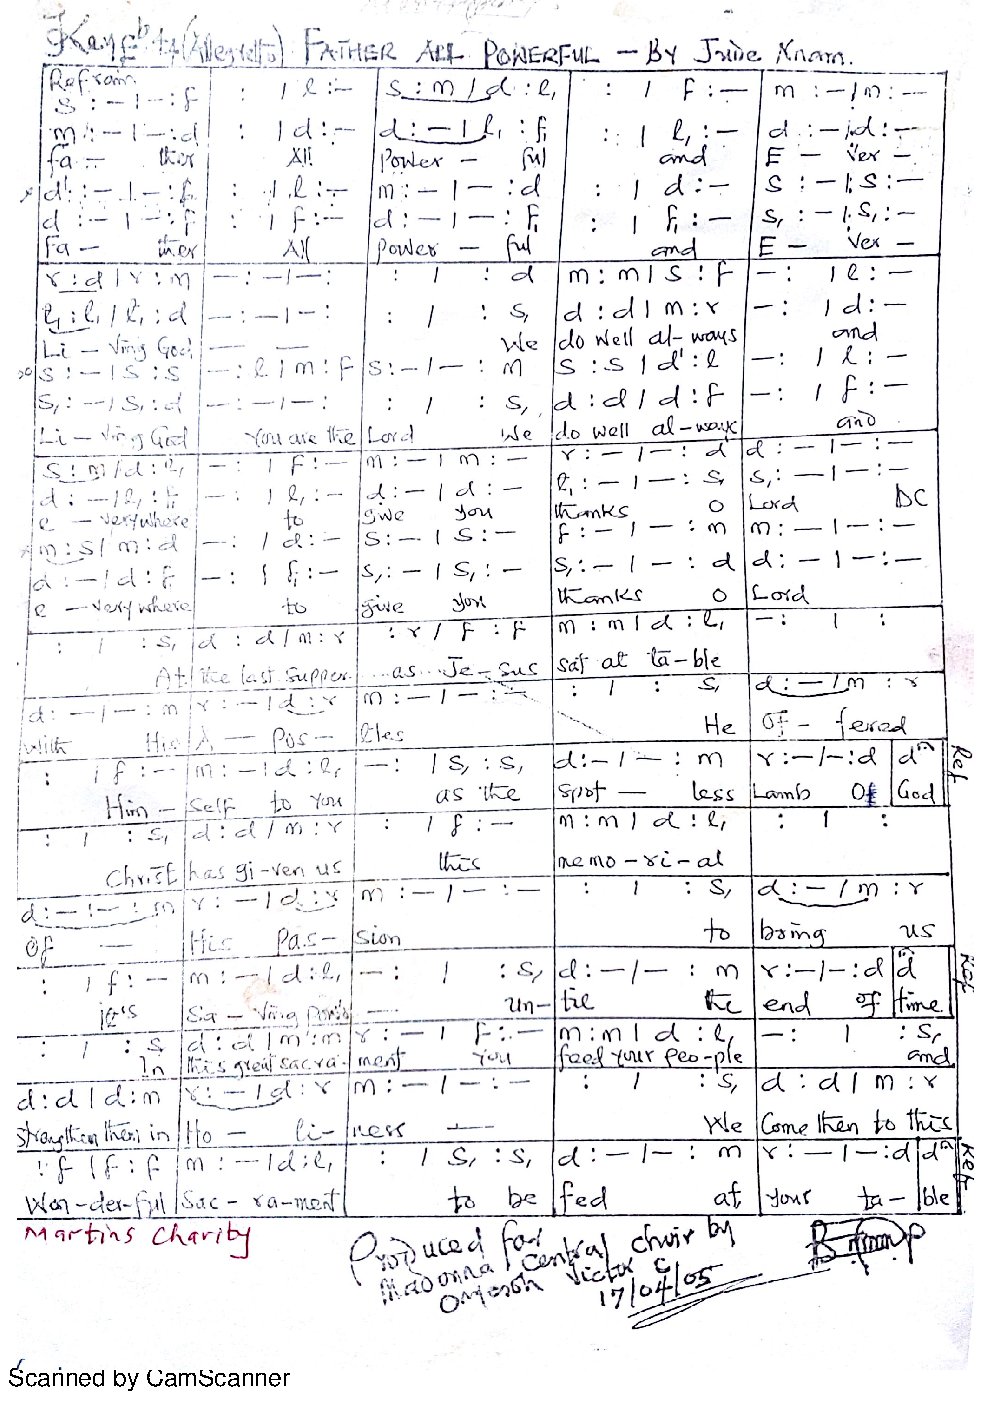 Key E♭ 4/4 (Allegretto) FATHER ALL POWERFUL - By Jude Nnam.
Refrain
S : - | - : f | : | l : - | s : m | d : l, | : | f : - | m : - | m : -
m : - | - : d | : | d : - | d : - | l, : f, | : | l, : - | d : - | d : -
Fa - ther All Power - ful and E - ver -
d' : - | - : f | : | l : - | m : - | - : d | : | d : - | s : - | s : -
d : - | - : f | : | f : - | d : - | - : f, | : | f, : - | s, : - | s, : -
Fa - ther All Power - ful and E - ver -
r : d | r : m | - : - | - : | : | : d | m : m | s : f | - : | l : -
l, : l, | l, : d | - : - | - : | : | : s, | d : d | m : r | - : | d : -
Li - ving God — — We do well al - ways and
s : - | s : s | - : l | m : f | s : - | - : m | s : s | d' : l | - : | l : -
s, : - | s, : d | - : - | - : | : | : s, | d : d | d : f | - : | f : -
Li - ving God You are the Lord We do well al - ways and
s : m | d : l, | - : | f : - | m : - | m : - | r : - | - : d | d : - | - : -
d : - | l, : f, | - : | l, : - | d : - | d : - | l, : - | - : s, | s, : - | - : -
e - verywhere to give you thanks O Lord DC
m : s | m : d | - : | d : - | s : - | s : - | f : - | - : m | m : - | - : -
d : - | d : f, | - : | f, : - | s, : - | s, : - | s, : - | - : d | d : - | - : -
e - verywhere to give you thanks O Lord
: | : s, | d : d | m : r | : r | f : f | m : m | d : l, | - : | :
At the last supper as Je - sus sat at ta - ble
d : - | - : m | r : - | d : r | m : - | - : - | : | : s, | d : - | m : r
with His A - pos - tles He Of - fered
: | f : - | m : - | d : l, | - : | s, : s, | d : - | - : m | r : - | - : d | d Ref
Him - self to you as the spot - less Lamb Of God
: | : s, | d : d | m : r | : | f : - | m : m | d : l, | : | :
Christ has gi - ven us this memo - ri - al
d : - | - : m | r : - | d : r | m : - | - : - | : | : s, | d : - | m : r
Of — His Pas - sion to bring us
: | f : - | m : - | d : l, | - : | : s, | d : - | - : m | r : - | - : d | d Ref
it's Sa - ving — un - til the end of time
: | : s, | d : d | m : m | r : - | f : - | m : m | d : l, | - : | : s,
In this great sacra - ment you feed your peo - ple and
d : d | d : m | r : - | d : r | m : - | - : - | : | : s, | d : d | m : r
strengthen them in Ho - li - ness — We Come then to this
: f | f : f | m : - | d : l, | : | s, : s, | d : - | - : m | r : - | - : d | d Ref
Won - der - ful Sac - ra - ment to be fed at your ta - ble
Martins Charity
Produced for
Madonna Central choir by
Victor C
17/04/05
Scanned by CamScanner